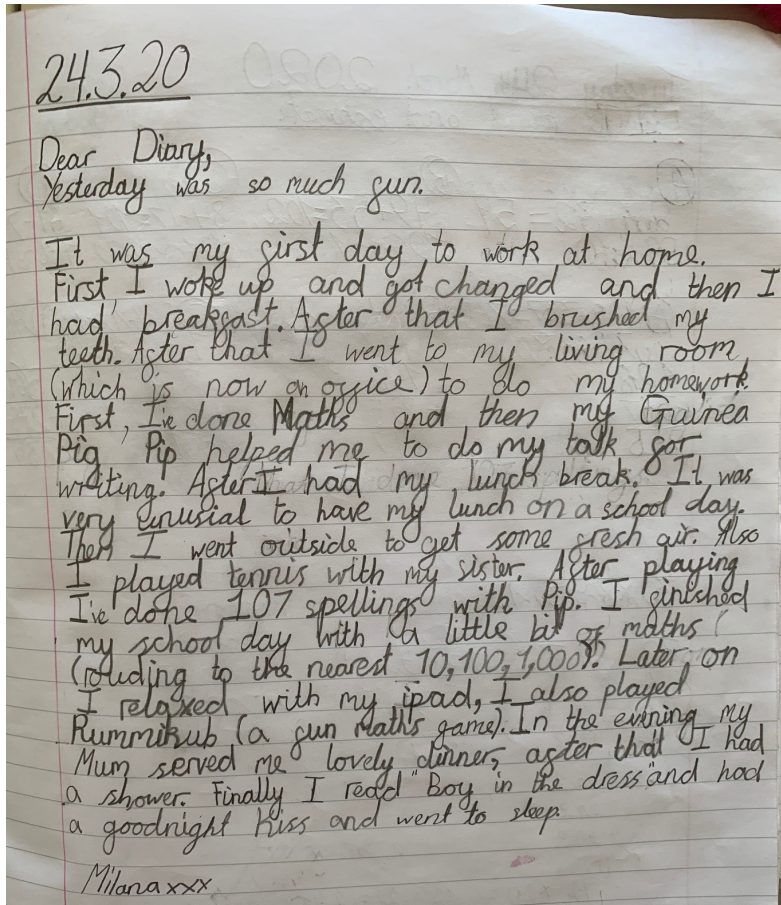 24.3.20
Dear Diary,
Yesterday was so much fun.
It was my first day to work at home.
First I woke up and got changed and then I
had breakfast. After that I brushed my
teeth. After that I went to my living room
(which is now an office) to do my homework.
First, I've done Maths and then my Guinea
Pig Pip helped me to do my talk for
writing. After I had my lunch break. It was
very unusial to have my lunch on a school day.
Then I went outside to get some fresh air. Also
I played tennis with my sister. After playing
I've done 107 spellings with Pip. I finished
my school day with a little bit of maths
(rouding to the nearest 10,100,1,000). Later on
I relaxed with my ipad, I also played
Rummikub (a fun Maths game). In the evening my
Mum served me lovely dinner, after that I had
a shower. Finally I read "Boy in the dress" and had
a goodnight kiss and went to sleep.
Milana xxx